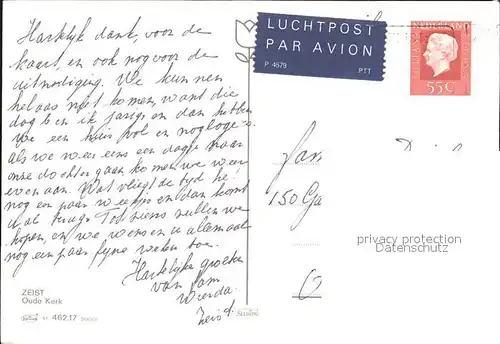 Hartelijk dank, voor de
kaart en ook nog voor de
uitnodiging. We kunnen
helaas niet komen, want die
dag ben ik jarig en dan hebben
we een huis vol en nog loge's
als we weer eens een dagje naar
onze dochter gaan, komen we weer
even aan. Wat vliegt de tijd he!
nog en paar weekjes en dan komt
u al terug. Tot ziens zullen we
hopen, en we wensen u allemaal
nog een paar fijne weken toe.
Hartelijke groeten
van fam
Wierda.
Zeist.
LUCHTPOST
PAR AVION
P 4579 PTT
NEDERLAND
55c
fam
150 Ga
privacy protection
Datenschutz
ZEIST
Oude Kerk
462.17